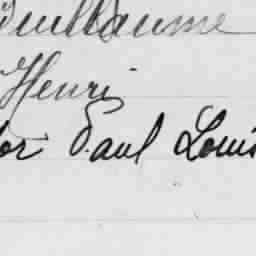 Guillaume
Henri
or Paul Louis